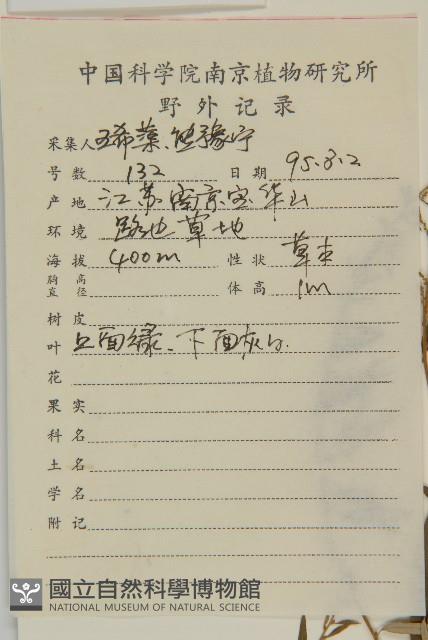 中国科学院南京植物研究所
野外记录
采集人 王希蕖、熊豫宁
号数 132 日期 95.3.2
产地 江苏南京宝华山
环境 路边草地
海拔 400m 性状 草本
胸高直径 体高 1m
树皮
叶 上面绿、下面灰白.
花
果实
科名
土名
学名
附记
國立自然科學博物館
NATIONAL MUSEUM OF NATURAL SCIENCE